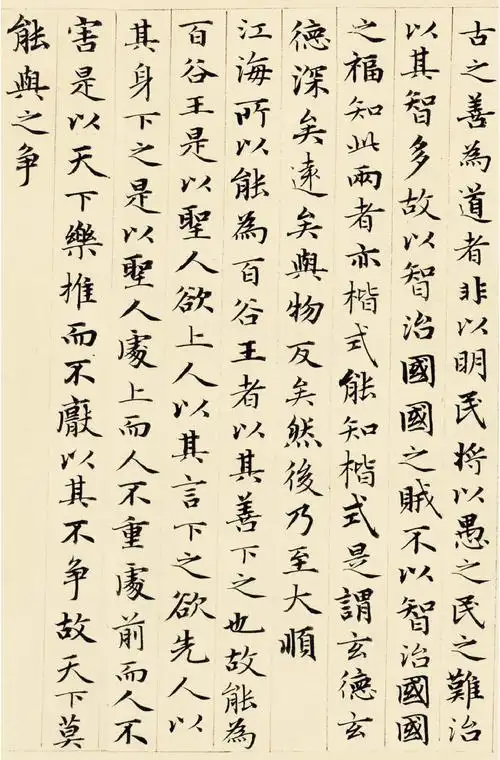 古之善為道者非以明民将以愚之民之難治
以其智多故以智治國國之賊不以智治國國
之福知此兩者亦楷式能知楷式是謂玄德玄
德深矣遠矣與物反矣然後乃至大順
江海所以能為百谷王者以其善下之也故能為
百谷王是以聖人欲上人以其言下之欲先人以
其身下之是以聖人處上而人不重處前而人不
害是以天下樂推而不厭以其不争故天下莫
能與之争